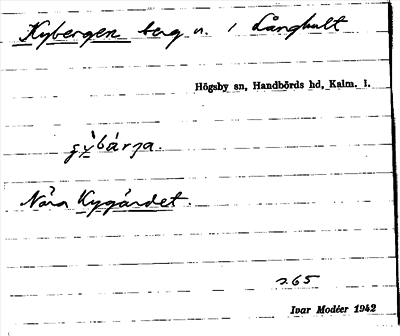 Kybergen berg n. i Långhult
Högsby sn, Handbörds hd, Kalm. l.
Nära Kygärdet.
265
Ivar Modéer 1942